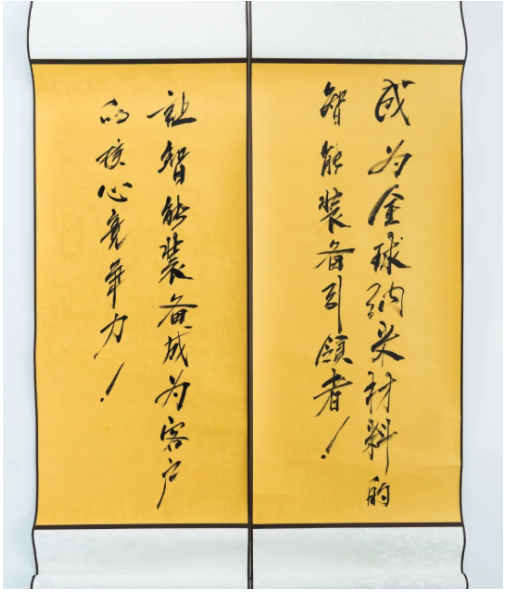 成为全球纳米材料的
智能装备引领者！
让智能装备成为客户
的核心竞争力！